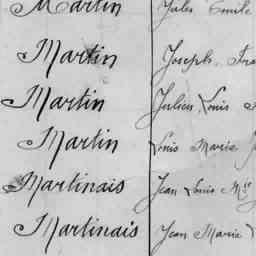 Martin Jules Emile
Martin Joseph Fra
Martin Julien Louis
Martin Louis Marie
Martinais Jean Louis Mie
Martinais Jean Marie